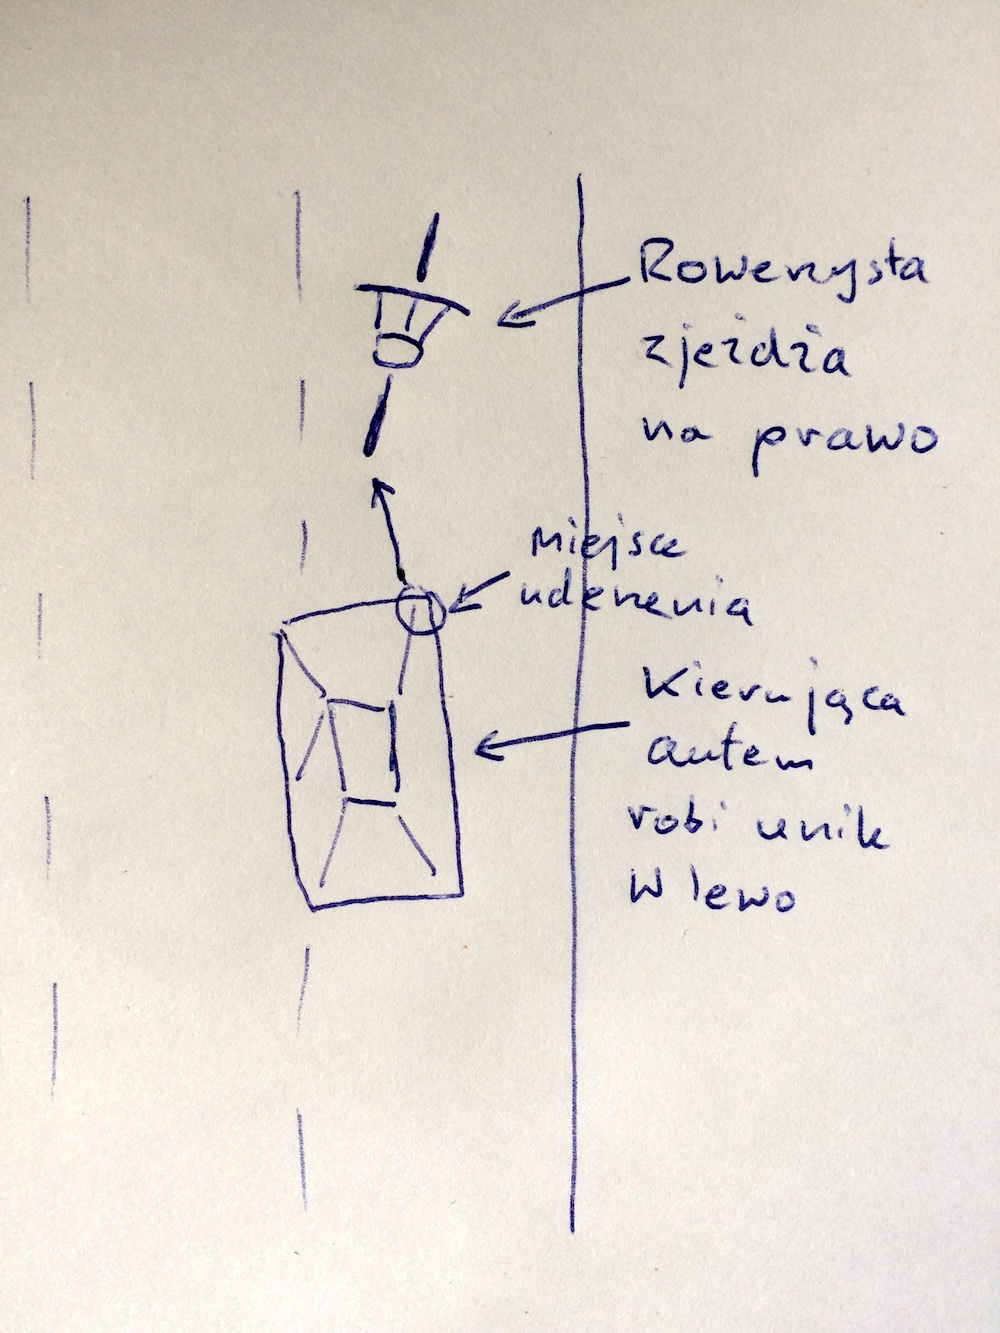 Rowerzysta
zjeżdża
na prawo
Miejsce
uderzenia
Kierująca
autem
robi unik
w lewo